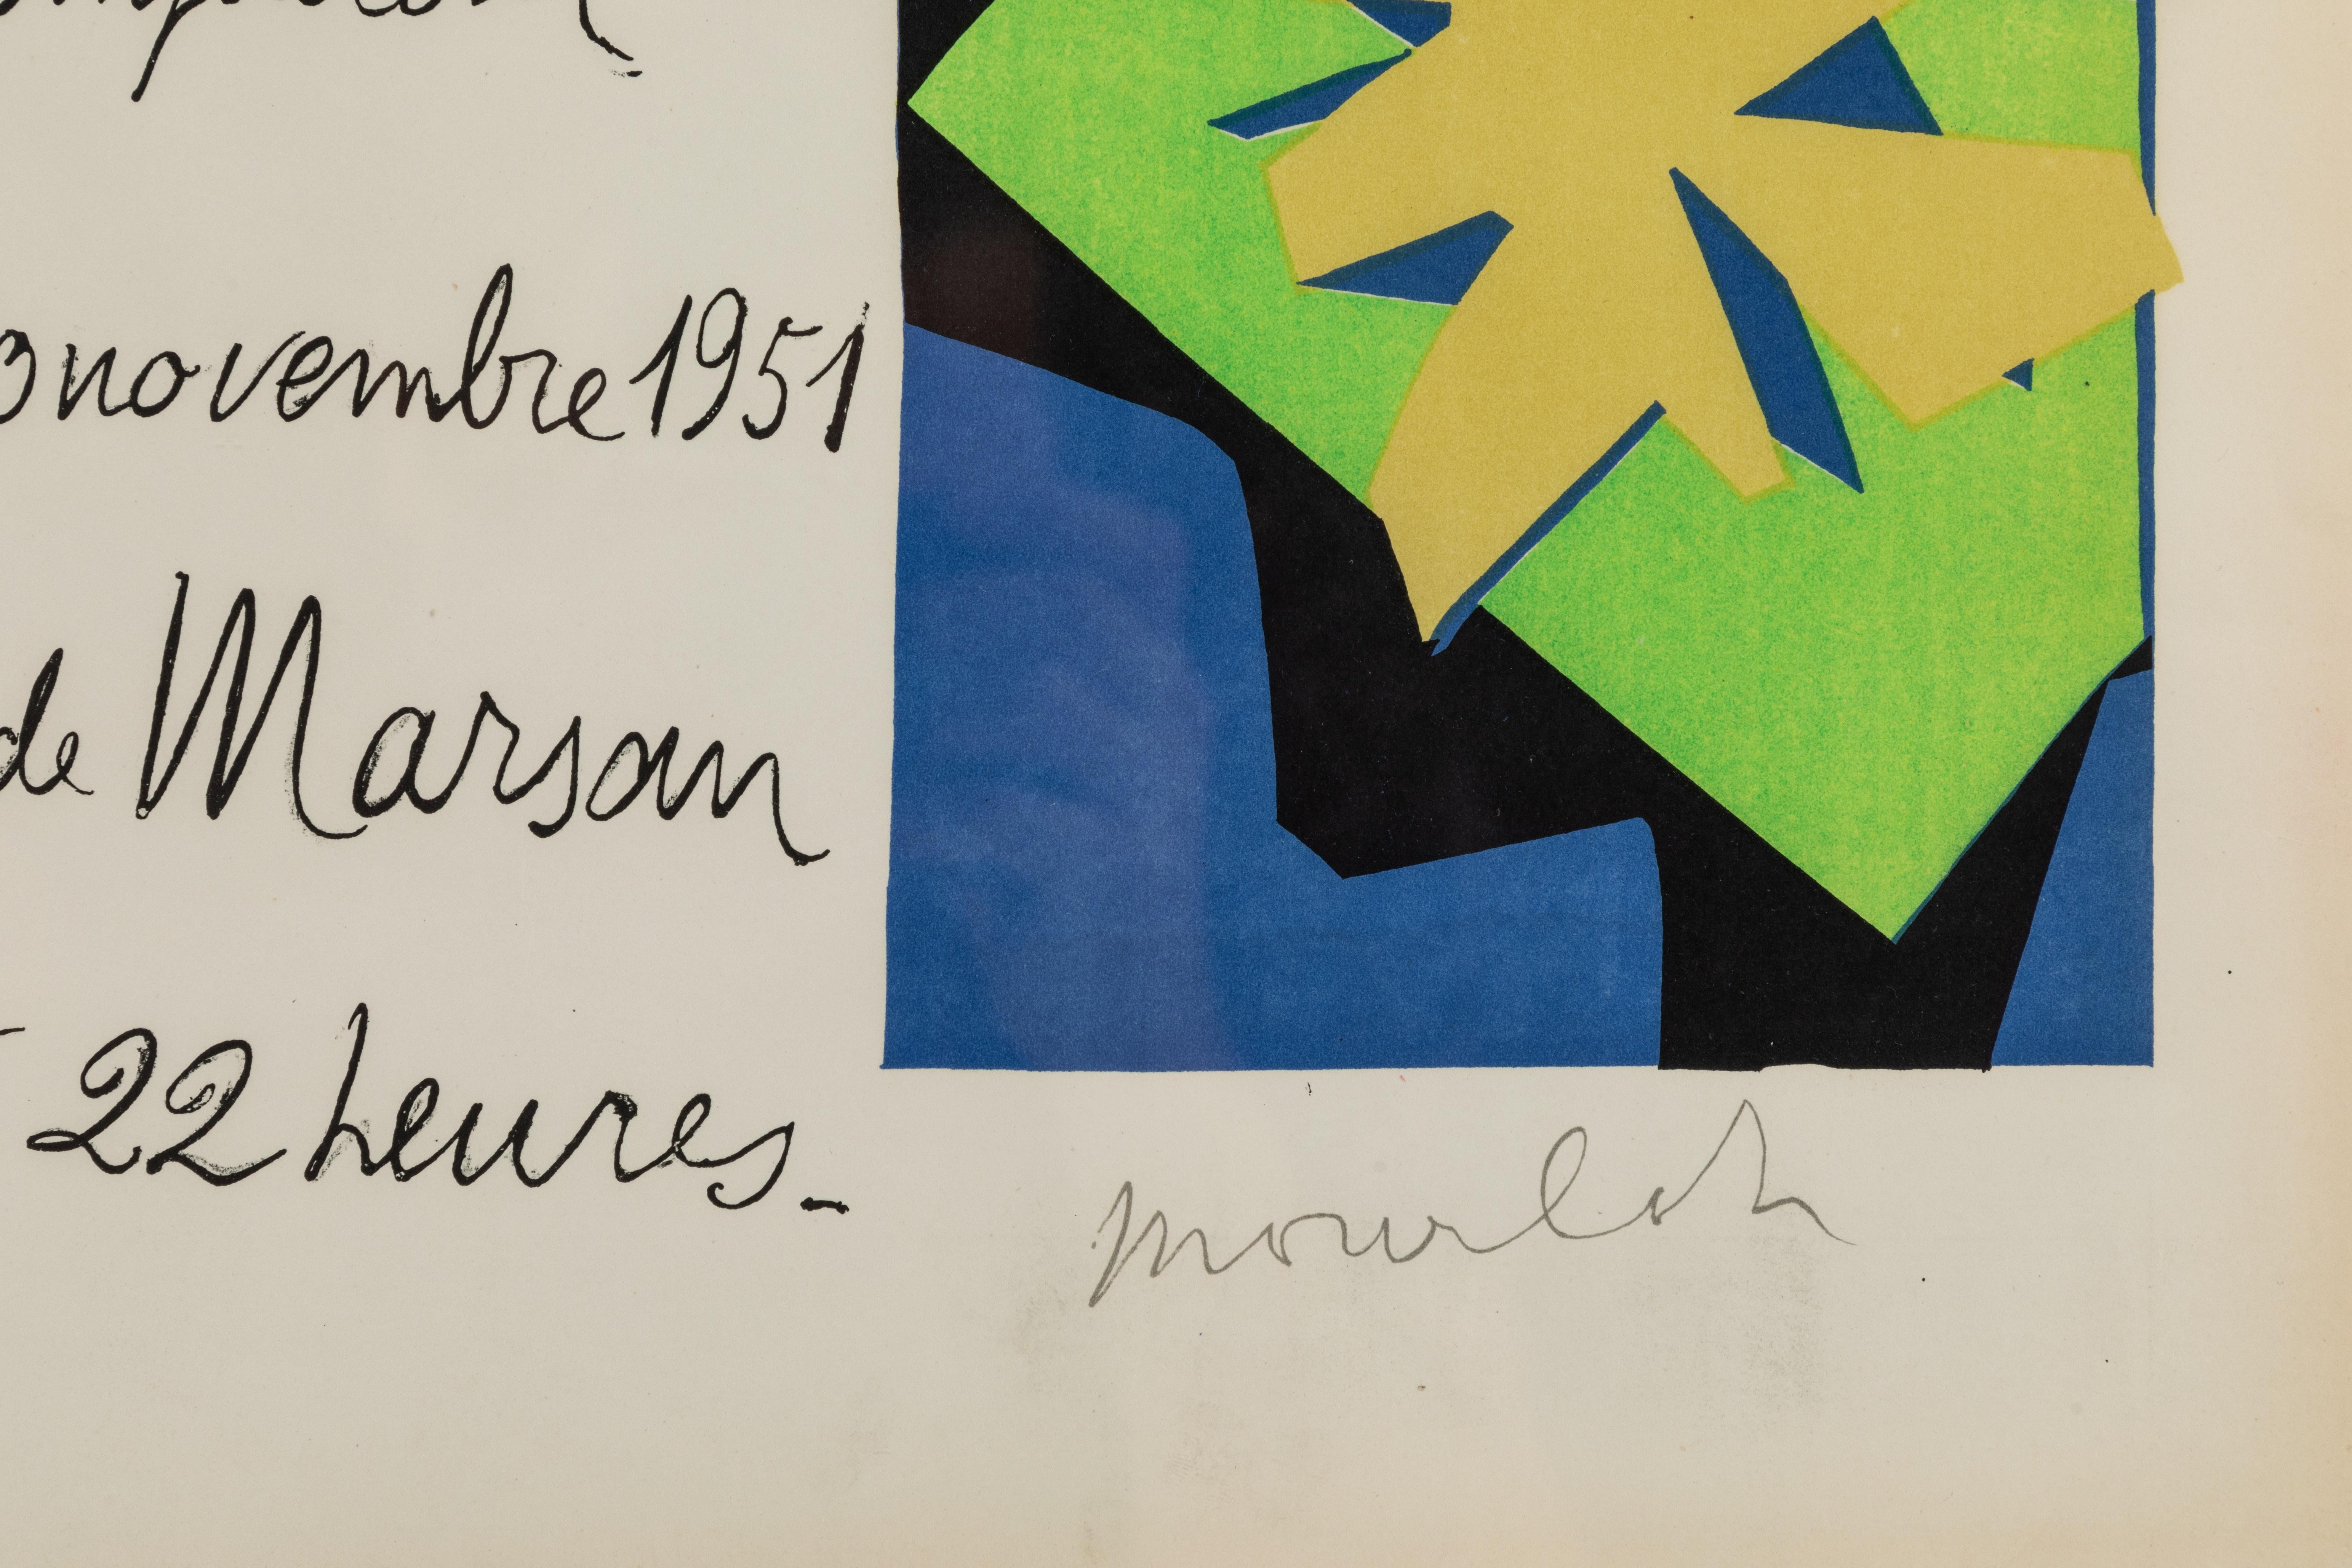 3 novembre 1951
de Marsan
22 heures_
mourlot